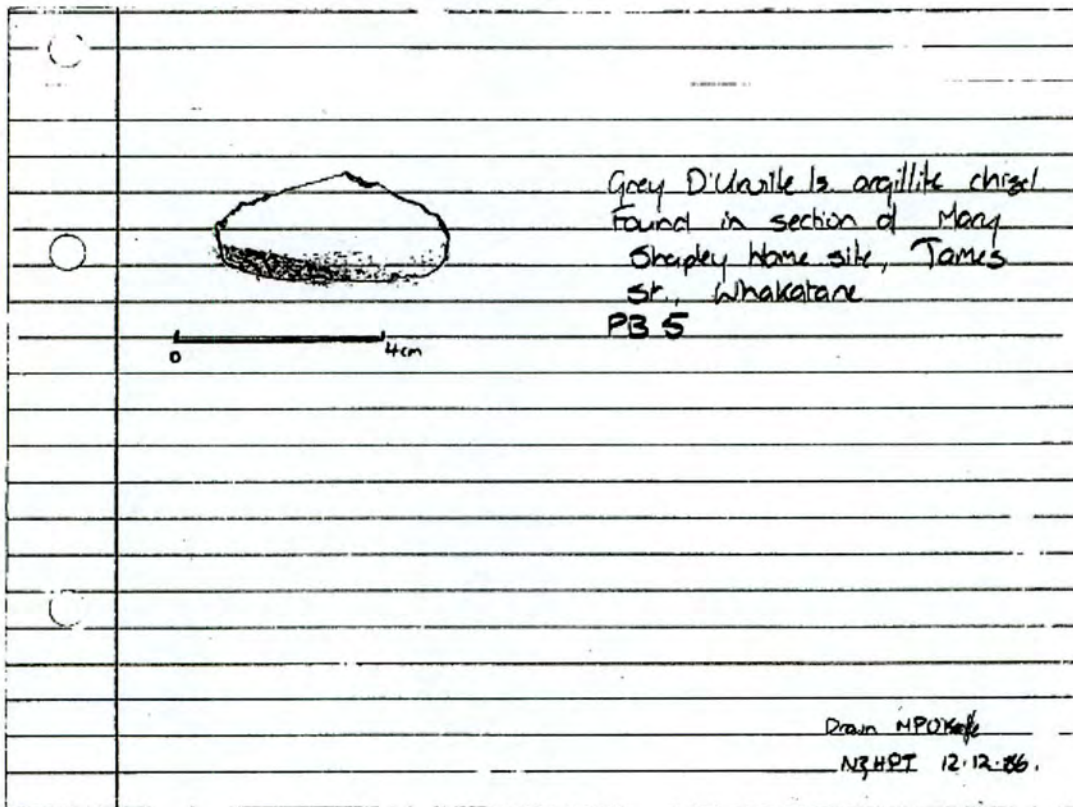 Grey D'Urville Is. argillite chisel
Found in section of Mary
Shapley Home site, James
St., Whakatane
PB 5
0 4cm
Drawn MPO'Keefe
NZHPT 12.12.86.